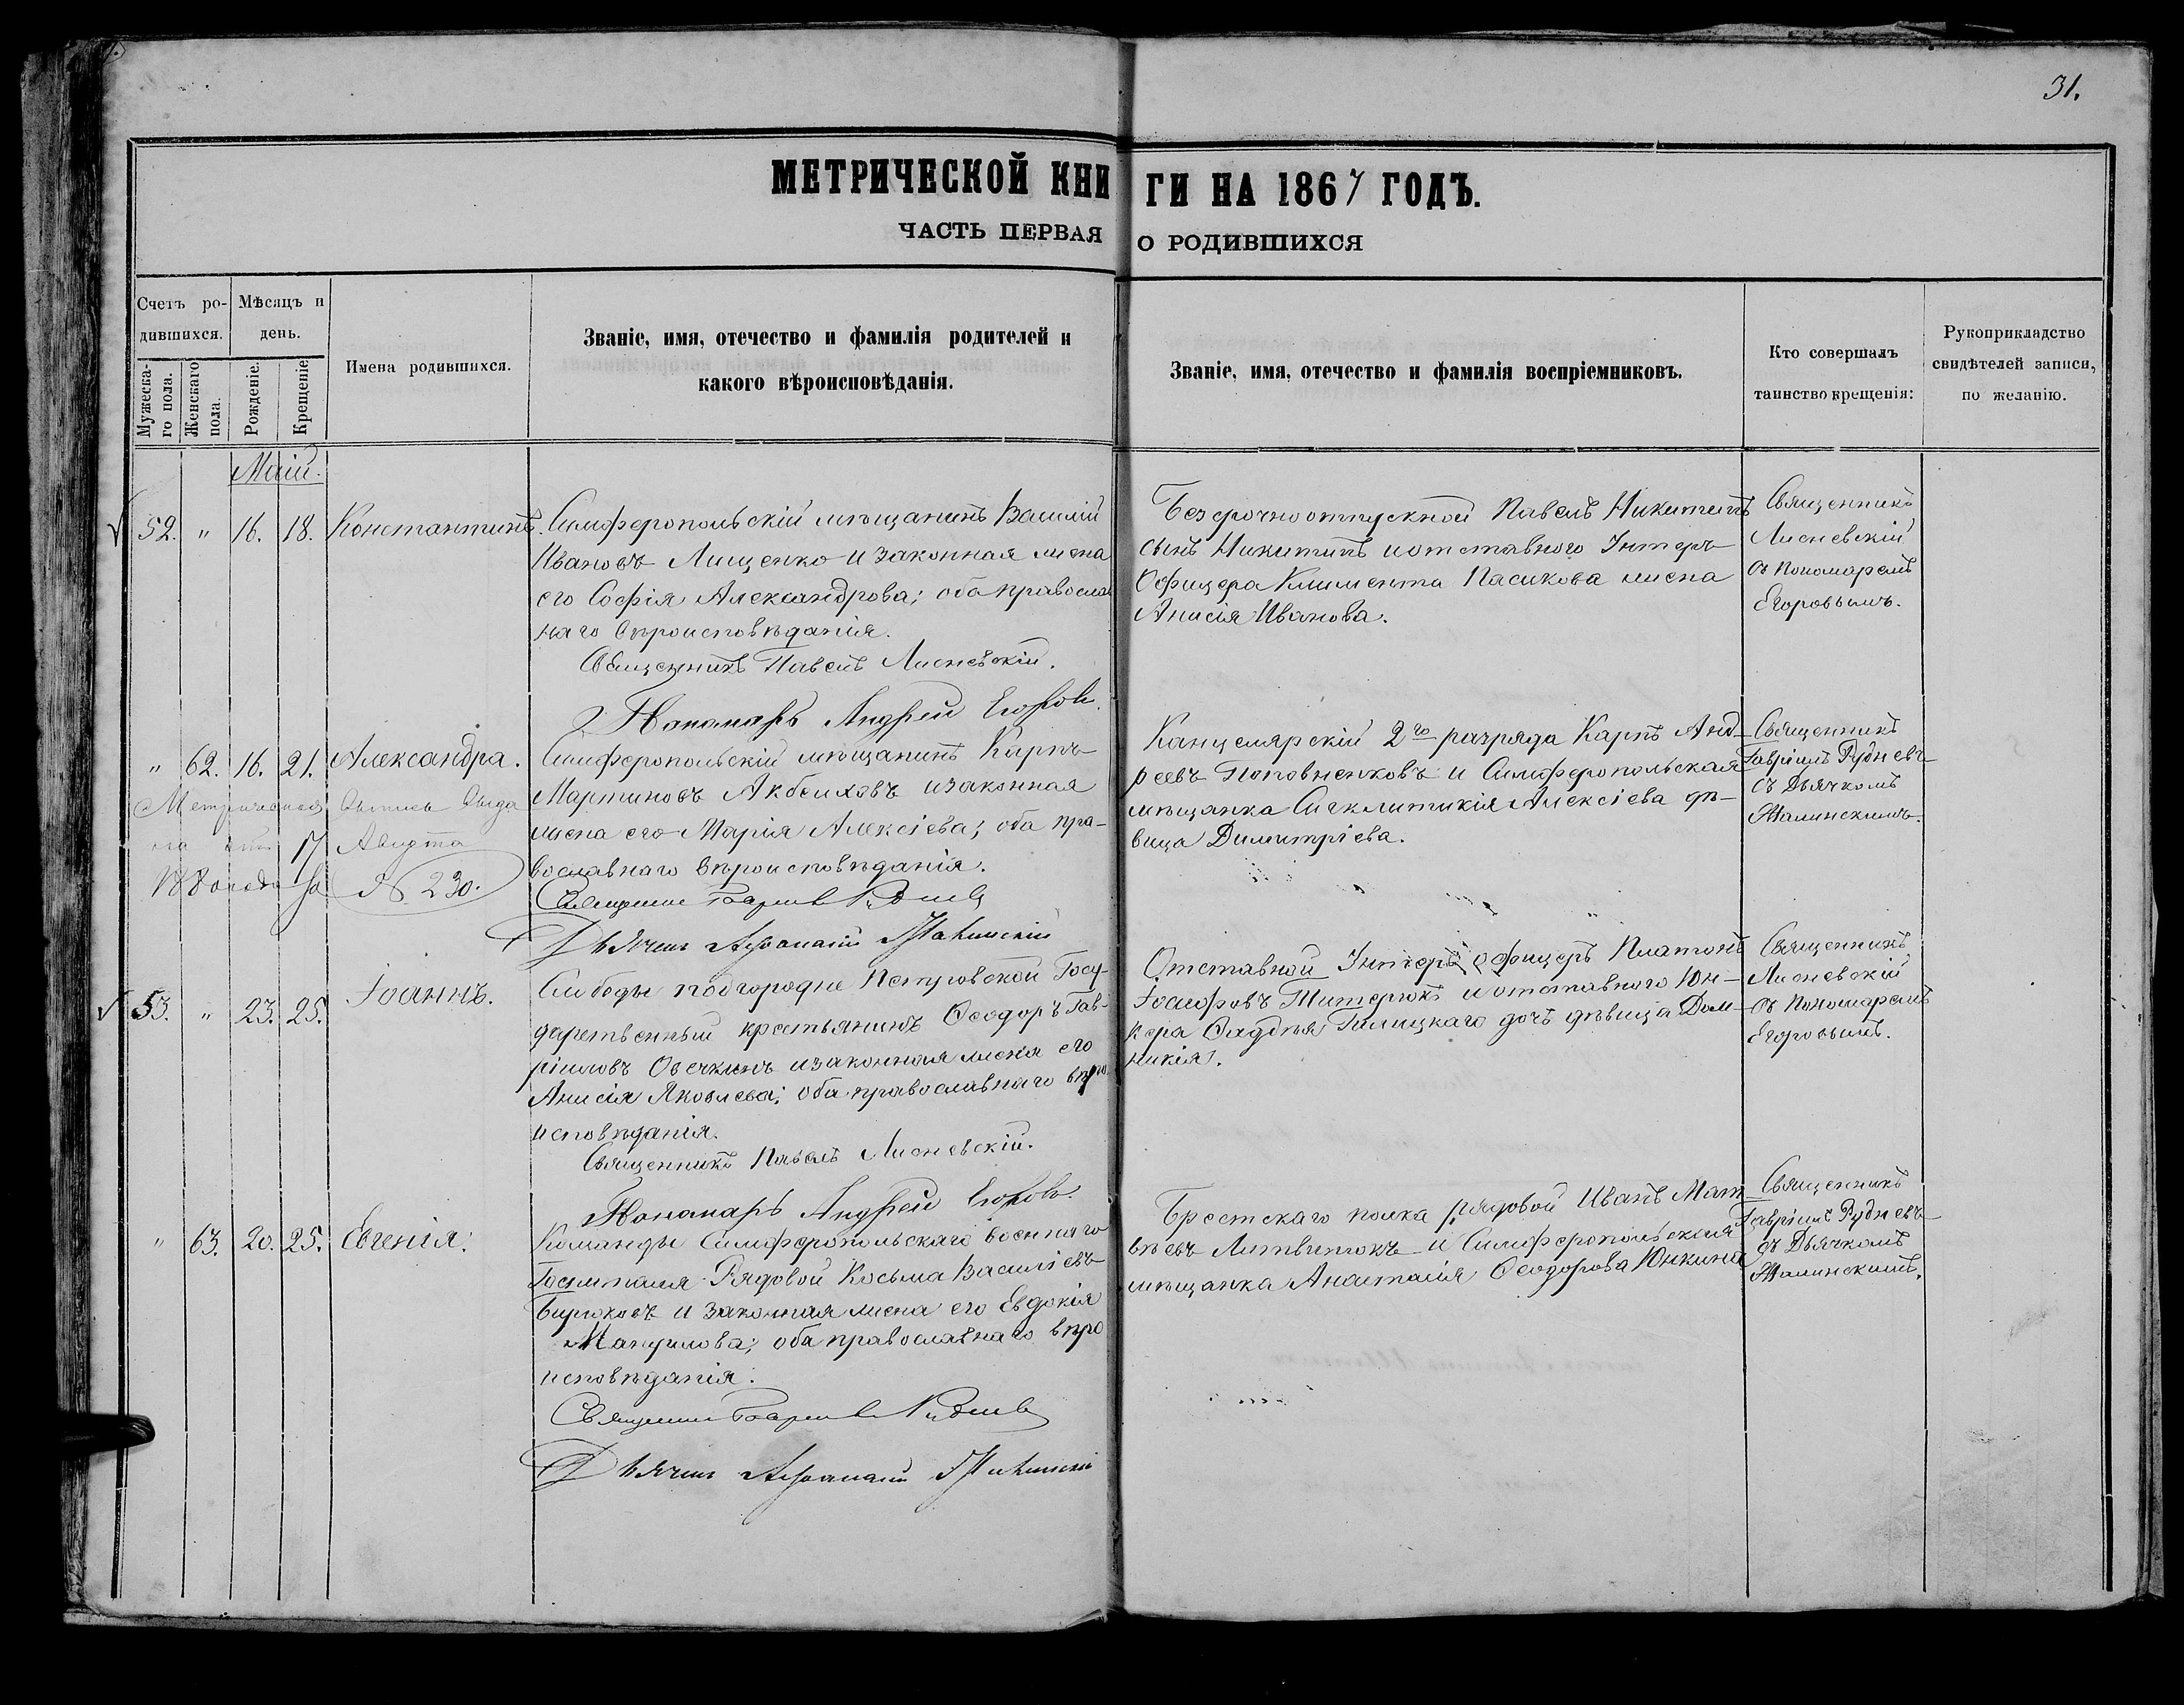 31.
МЕТРИЧЕСКОЙ КНИГИ НА 1867 ГОДЪ.
ЧАСТЬ ПЕРВАЯ О РОДИВШИХСЯ
Счетъ ро-
дившихся.
Мужеска-
го пола.
Женскаго
пола.
Мѣсяцъ и
день.
Рожденіе.
Крещеніе.
Имена родившихся.
Званіе, имя, отечество и фамилія родителей и
какого вѣроисповѣданія.
Званіе, имя, отечество и фамилія воспріемниковъ.
Кто совершалъ
таинство крещенія:
Рукоприкладство
свидѣтелей записи,
по желанію.
Маій.
52. " 16. 18. Константинъ.
Симферопольскій мѣщанинъ Василій
Ивановъ Лищенко и законная жена
его Софія Александрова; оба православ
наго вѣроисповѣданія.
Священникъ Павелъ Лисневскій.
Пономарь Андрей Егоровъ.
Безсрочноотпускной Павелъ Никитинъ
сынъ Никитинъ и отставного Унтеръ
Офицера Климента Пасикова жена
Анисія Иванова.
Священникъ
Лисневскій
съ Пономаремъ
Егоровымъ.
" 62. 16. 21. Александра.
Метрическая выпись выда
на 17 Августа
за № 230.
Симферопольскій мѣщанинъ Карпъ
Мартиновъ Акбелховъ и законная
жена его Марія Алексіева; оба пра-
вославнаго вѣроисповѣданія.
Священник Гавриил Руднев
Дьячекъ Афанасій Жалинскій
Канцелярскій 2го разряда Карпъ Анд-
реевъ Поповненковъ и Симферопольская
мѣщанка Сигклитикія Алексіева дѣ-
вица Димитріева.
Священникъ
Гавріилъ Рудневъ
съ Дьячкомъ
Жалинскимъ.
53. " 23. 25. Іоаннъ.
Слободы подгородне Петровской Госу-
дарственный крестьянинъ Ѳеодоръ Гав-
ріиловъ Овечкинъ и законная жена его
Анисія Яковлева; оба православнаго вѣро
исповѣданія.
Священникъ Павелъ Лисневскій.
Пономарь Андрей Егоровъ.
Отставной Унтеръ офицеръ Платонъ
Іосифовъ Титерюкъ и отставного Юн-
кера Ѳаддѣя Гилицкаго дочь дѣвица Дом-
никія.
Священникъ
Лисневскій
съ Пономаремъ
Егоровымъ.
" 63. 20. 25. Евгенія.
Команды Симферопольскаго военнаго
Госпиталя Рядовой Косьма Василіевъ
Бирюковъ и законная жена его Евдокія
Мануилова; оба православнаго вѣро
исповѣданія.
Священник Гавриил Руднев
Дьячекъ Афанасій Жалинскій
Брестскаго полка рядовой Иванъ Мат
вѣевъ Литвинюкъ и Симферопольская
мѣщанка Анастасія Ѳеодорова Юнкина
Священникъ
Гавріилъ Рудневъ
съ Дьячкомъ
Жалинскимъ.